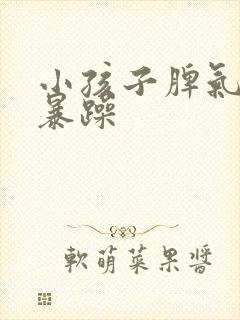 小孩子脾氣
暴躁
軟萌菜果醬